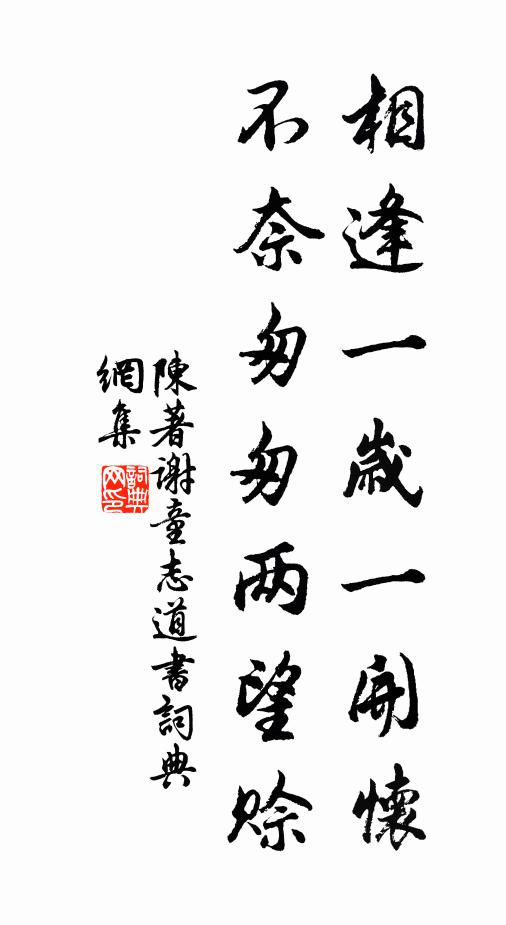 相逢一歲一開懷
不奈匆匆兩望賒
陳著謝童志道書詞典
網集
詞典網印